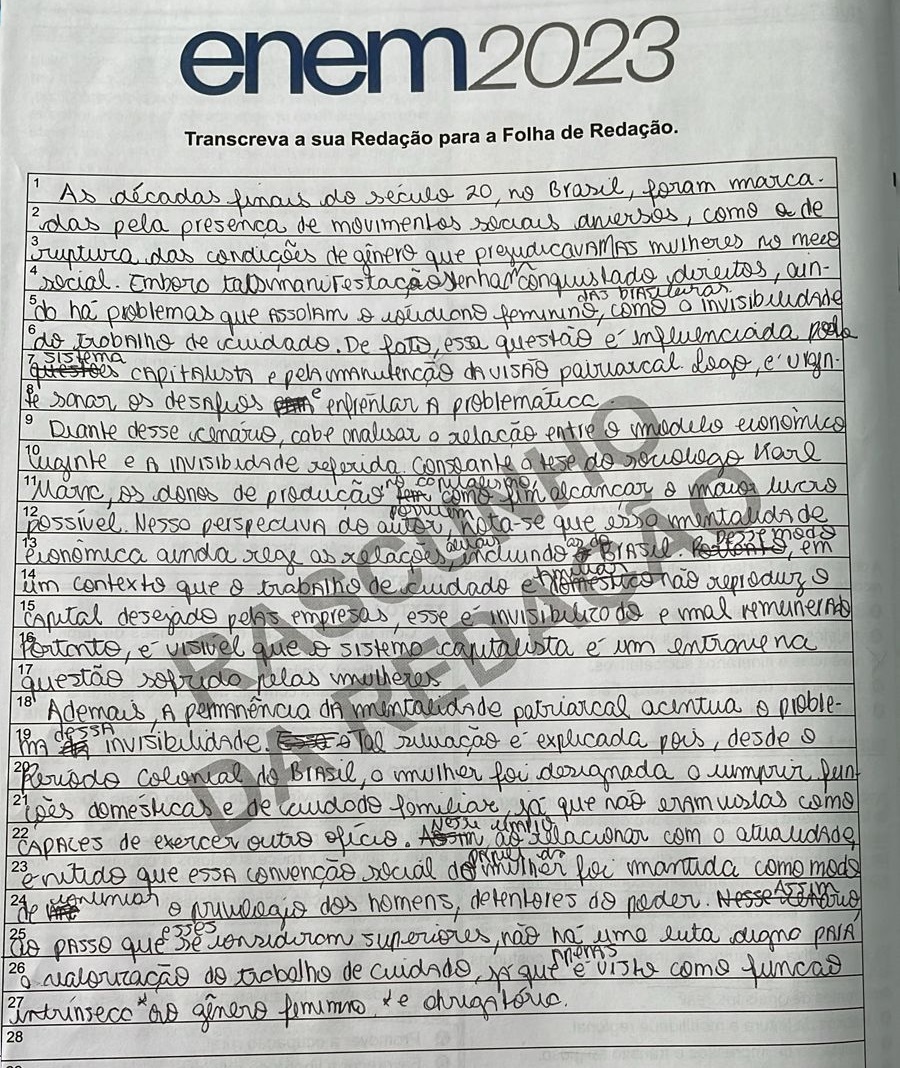 enem2023
Transcreva a sua Redação para a Folha de Redação.
1 As décadas finais do século 20, no Brasil, foram marca-
2 das pela presença de movimentos sociais diversos, como a de
3 ruptura das condições de gênero que prejudicavAM AS mulheres no meio
4 social. Embora tais manifestações tenham conquistado direitos, ain-
5 da há problemas que ASSOLAM o cotidiano feminino, DAS BRASILEIRAS como a INVISIBILIDADE
6 do trabalho de cuidado. De fato, essa questão é influenciada pelo
7 sistema CAPITALISTA e pela MANUTENÇÃO DA VISÃO patriarcal. Logo, é urgen-
8 te sanar os desafios e enfrentar A problemática.
9 Diante desse cenário, cabe analisar a relação entre o modelo econômico
10 vigente e A INVISIBIDADE referida. Consoante a tese do sociólogo Karl
11 Marx, os donos de produção no capitalismo tem como fim alcançar o maior lucro
12 possível. Nesso perspectiva do autor, nota-se que essa mentalidade
13 econômica ainda rege as relações, incluindo as do BRASIL. Desse modo, em
14 um contexto que o trabalho de cuidado e doméstico não reproduz o
15 CAPITAL desejado pelas empresas, esse é invisibilizado e mal remunerado
16 Portanto, é VISÍVEL que o sistema capitalista é um entrave na
17 questão sofrida pelas mulheres
18 Ademais, A permanência DA mentalidade patriarcal acentua o proble-
19 ma dessA invisibilidade. Tal situação é explicada pois, desde o
20 Período colonial do BRASIL, a mulher foi designada a cumprir fun-
21 ções domésticas e de cuidado familiar, já que não eram vistas como
22 CAPAZES de exercer outro ofício. Nesse âmbito ao relacionar com a atualidade,
23 é nítido que ESSA convenção social do papel da mulher foi mantida como modo
24 de o privilégio dos homens, detentores do poder. Assim
25 ao PASSO que esses se consideram superiores, não há uma luta digna PARA
26 a valorização do trabalho de cuidado, já que é visto apenas como função
27 intrínseca * ao gênero feminino. * e obrigatória.
28
RASCUNHO
DA REDAÇÃO